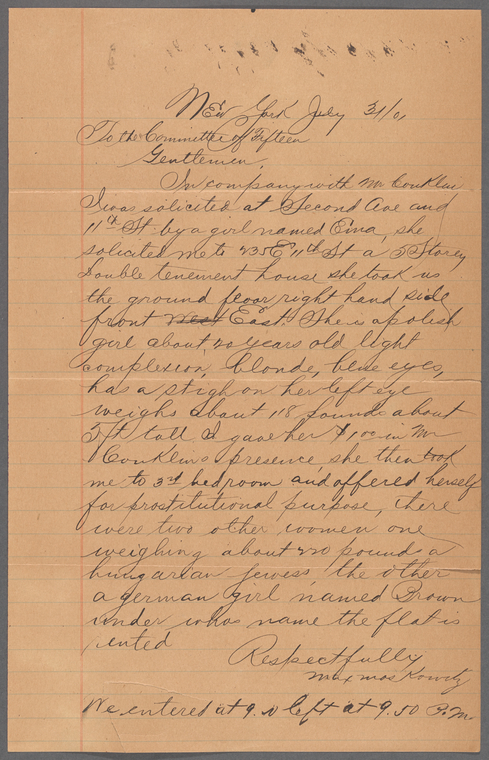 New York July 31/01
To the Committee of Fifteen
Gentlemen,
In company with Mr Conklin
I was solicited at Second Ave and
11th St. by a girl named Ema, she
solicited me to 435 E 11th St a 5 Storey
Double tenement house she took us
the ground floor right hand side
front West East. She is a polish
girl about 20 years old light
complexion, blonde, blue eyes,
has a stigh on her left eye
weighs about 118 pounds about
5 ft tall I gave her $1,00 in Mr
Conklins presence, she then took
me to 3rd bedroom and offered herself
for prostitutional purpose, there
were two other women one
weighing about 220 pounds a
hungarian jewess, the other
a german girl named Brown
under whos name the flat is
rented
Respectfully
Max Moskowitz
We entered at 9.20 left at 9.50 P.M.